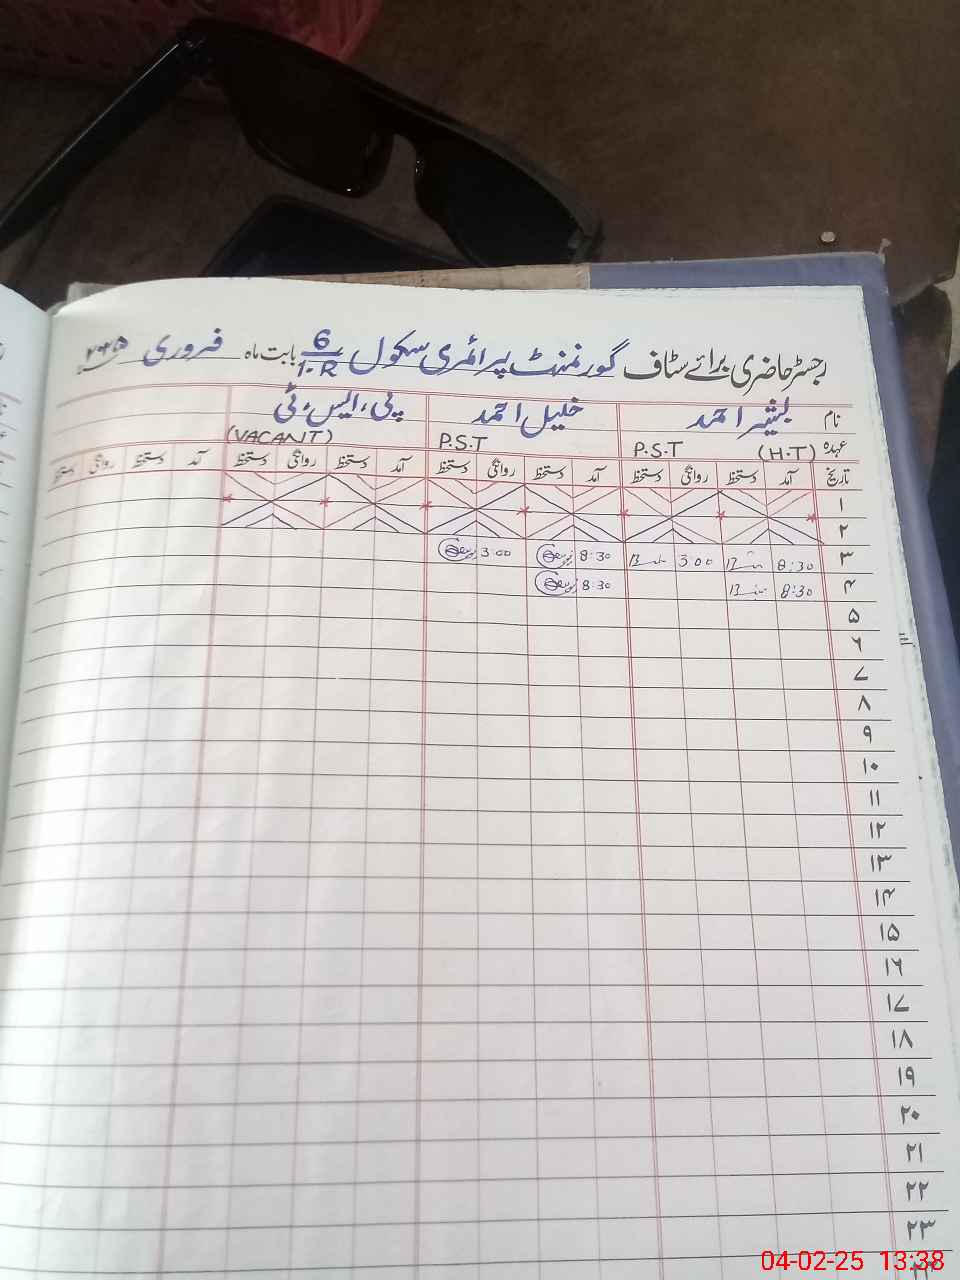 رجسٹر حاضری برائے سٹاف گورنمنٹ پرائمری سکول 6/1.R بابت ماہ فروری ۲۰۲۵
نام بشیر احمد خلیل احمد پی، ایس، ٹی
عہدہ (H.T) P.S.T P.S.T (VACANT)
تاریخ آمد دستخط روانگی دستخط آمد دستخط روانگی دستخط آمد دستخط روانگی دستخط آمد دستخط روانگی دستخط
۱
۲
۳ 8:30 3:00 8:30 3:00
۴ 8:30 8:30
۵
۶
۷
۸
۹
۱۰
۱۱
۱۲
۱۳
۱۴
۱۵
۱۶
۱۷
۱۸
۱۹
۲۰
۲۱
۲۲
۲۳
04-02-25 13:38